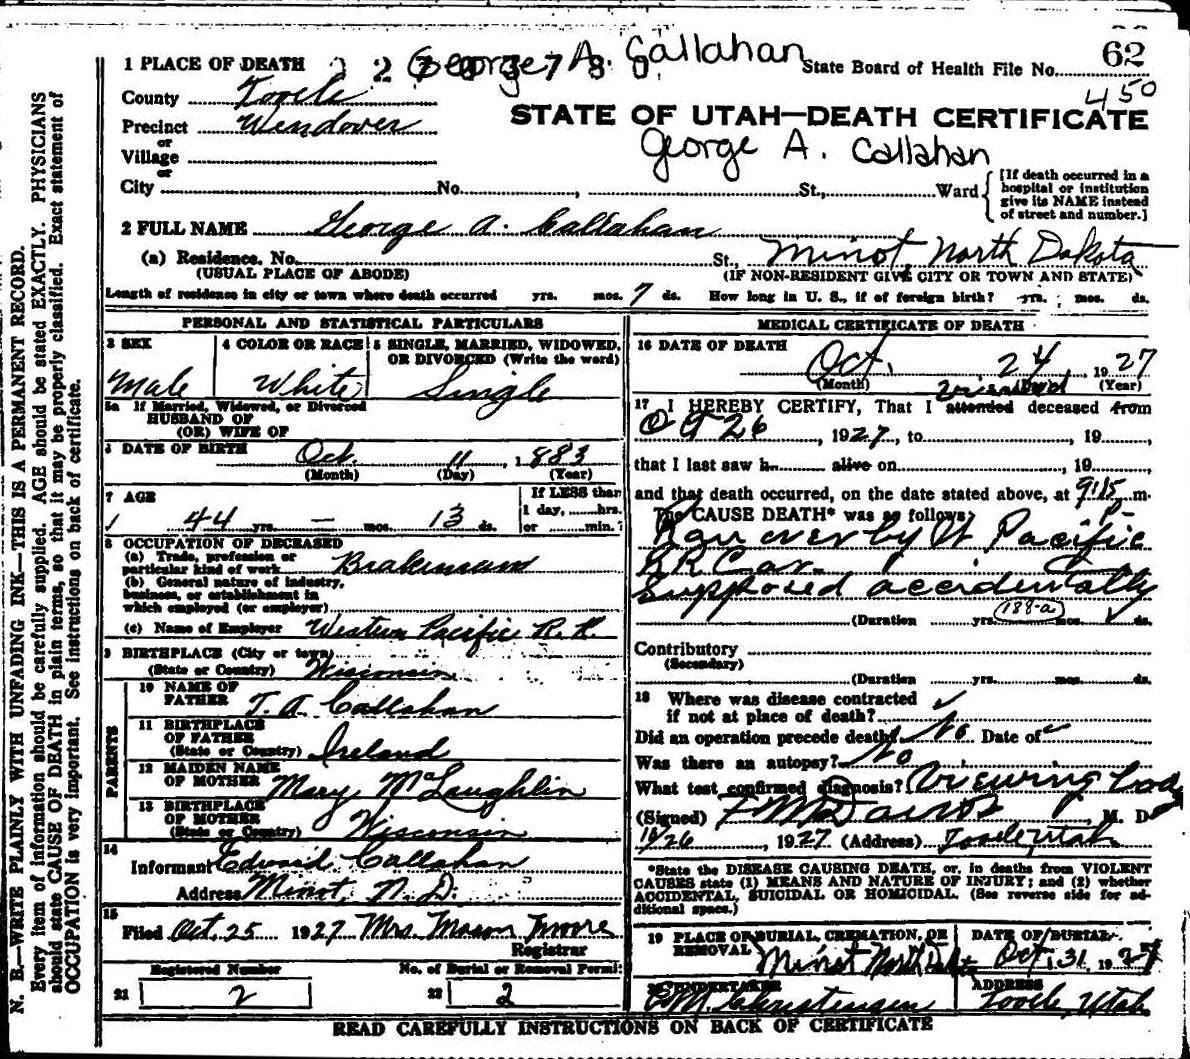 George A. Callahan
1 PLACE OF DEATH
State Board of Health File No. 62
450
County Tooele
STATE OF UTAH—DEATH CERTIFICATE
Precinct Wendover
or
Village
George A. Callahan
or
City No. , St., Ward
[If death occurred in a
hospital or institution
give its NAME instead
of street and number.]
2 FULL NAME George A. Callahan
(a) Residence. No. St., Minot, North Dakota
(USUAL PLACE OF ABODE) (IF NON-RESIDENT GIVE CITY OR TOWN AND STATE)
Length of residence in city or town where death occurred yrs. mos. 7 ds. How long in U. S., if of foreign birth? yrs. mos. ds.
PERSONAL AND STATISTICAL PARTICULARS
3 SEX
Male
4 COLOR OR RACE
White
5 SINGLE, MARRIED, WIDOWED,
OR DIVORCED (Write the word)
Single
5a If Married, Widowed, or Divorced
HUSBAND OF
(OR) WIFE OF
6 DATE OF BIRTH Oct. 11, 1883
(Month) (Day) (Year)
7 AGE
44 yrs. — mos. 13 ds.
If LESS than
1 day, hrs.
or min.?
8 OCCUPATION OF DECEASED
(a) Trade, profession or
particular kind of work Brakeman
(b) General nature of industry,
business, or establishment in
which employed (or employer)
(c) Name of Employer Western Pacific R. R.
9 BIRTHPLACE (City or town)
(State or Country) Wisconsin
PARENTS
10 NAME OF
FATHER T. A. Callahan
11 BIRTHPLACE
OF FATHER
(State or Country) Ireland
12 MAIDEN NAME
OF MOTHER Mary McLaughlin
13 BIRTHPLACE
OF MOTHER
(State or Country) Wisconsin
14
Informant Edward Callahan
Address Minot, N. D.
15
Filed Oct. 25 1927 Mrs. Mason Moore
Registrar
Registered Number No. of Burial or Removal Permit
21 2 22 2
MEDICAL CERTIFICATE OF DEATH
16 DATE OF DEATH
Oct. 24 1927
(Month) (Day) (Year)
viewed
17 I HEREBY CERTIFY, That I attended deceased from
Oct 26, 1927, to , 19 ,
that I last saw h alive on , 19 ,
and that death occurred, on the date stated above, at 9:15 P. m.
The CAUSE DEATH* was as follows:
Ran over by W Pacific
RR Car.
Supposed accidentally
188-a
(Duration yrs. mos. ds.
Contributory
(Secondary)
(Duration yrs. mos. ds.
18 Where was disease contracted
if not at place of death?
Did an operation precede death? No Date of
Was there an autopsy? No
What test confirmed diagnosis? Viewing body
(Signed) , M. D.
10/26, 1927 (Address) Tooele, Utah
*State the DISEASE CAUSING DEATH, or, in deaths from VIOLENT
CAUSES state (1) MEANS AND NATURE OF INJURY; and (2) whether
ACCIDENTAL, SUICIDAL OR HOMICIDAL. (See reverse side for ad-
ditional space.)
19 PLACE OF BURIAL, CREMATION, OR
REMOVAL Minot North Dak
DATE OF BURIAL
Oct. 31 1927
20 UNDERTAKER
M. Christensen
ADDRESS
Tooele, Utah
READ CAREFULLY INSTRUCTIONS ON BACK OF CERTIFICATE
N. B.—WRITE PLAINLY WITH UNFADING INK—THIS IS A PERMANENT RECORD.
Every item of information should be carefully supplied. AGE should be stated EXACTLY. PHYSICIANS
should state CAUSE OF DEATH in plain terms, so that it may be properly classified. Exact statement of
OCCUPATION is very important. See instructions on back of certificate.